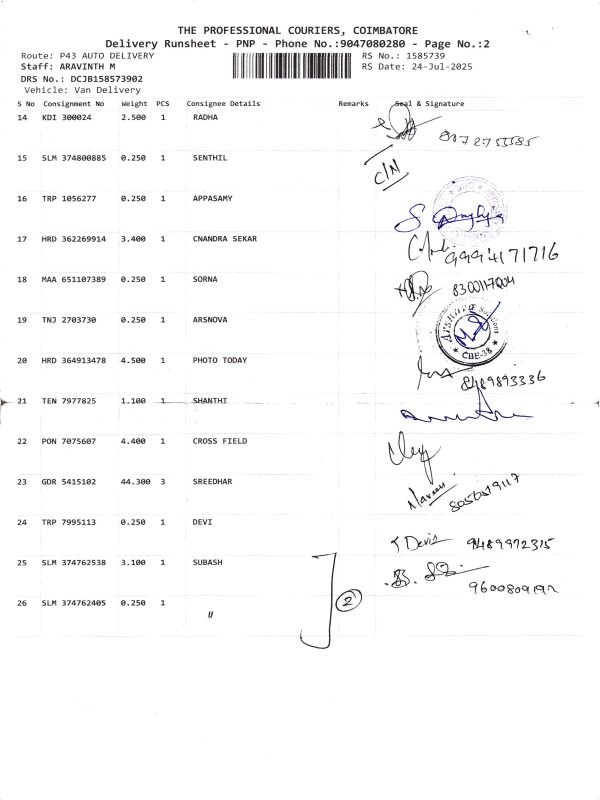 THE PROFESSIONAL COURIERS, COIMBATORE
Delivery Runsheet - PNP - Phone No.:9047080280 - Page No.:2
Route: P43 AUTO DELIVERY RS No.: 1585739
Staff: ARAVINTH M RS Date: 24-Jul-2025
DRS No.: DCJB158573902
Vehicle: Van Delivery
S No Consignment No Weight PCS Consignee Details Remarks Seal & Signature
14 KDI 300024 2.500 1 RADHA
15 SLM 374800885 0.250 1 SENTHIL C/N
16 TRP 1056277 0.250 1 APPASAMY
17 HRD 362269914 3.400 1 CNANDRA SEKAR 9994171716
18 MAA 651107389 0.250 1 SORNA
19 TNJ 2703730 0.250 1 ARSNOVA Arsnova Solutions CBE-38
20 HRD 364913478 4.500 1 PHOTO TODAY 8489893336
21 TEN 7977825 1.100 1 SHANTHI
22 PON 7075607 4.400 1 CROSS FIELD
23 GDR 5415102 44.300 3 SREEDHAR Naveen
24 TRP 7995113 0.250 1 DEVI 9489972315
25 SLM 374762538 3.100 1 SUBASH
26 SLM 374762405 0.250 1 〃 2